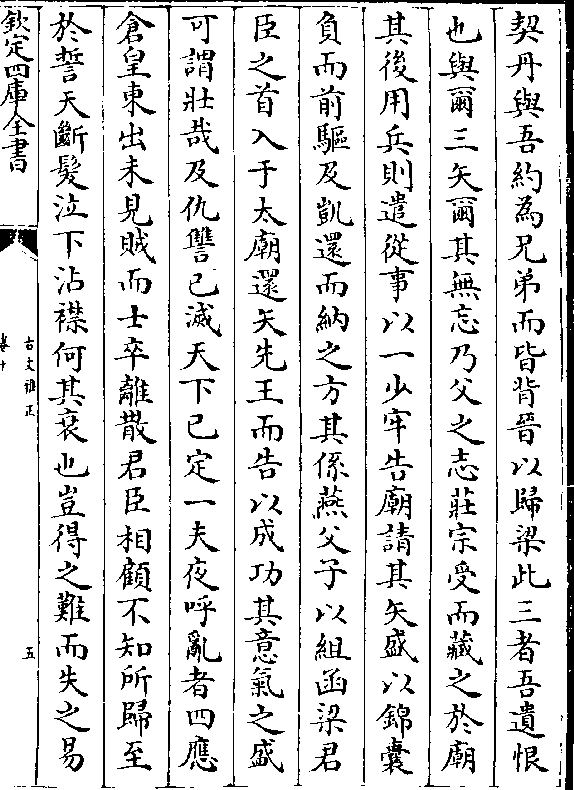 契丹與吾約為兄弟而皆背晉以歸梁此三者吾遺恨
也與爾三矢爾其無忘乃父之志莊宗受而藏之於廟
其後用兵則遣從事以一少牢告廟請其矢盛以錦囊
負而前驅及凱還而納之方其係燕父子以組函梁君
臣之首入于太廟還矢先王而告以成功其意氣之盛
可謂壯哉及仇讐已滅天下已定一夫夜呼亂者四應
倉皇東出未見賊而士卒離散君臣相顧不知所歸至
於誓天斷髮泣下沾襟何其衰也豈得之難而失之易
欽定四庫全書
古文雅正
卷十
五